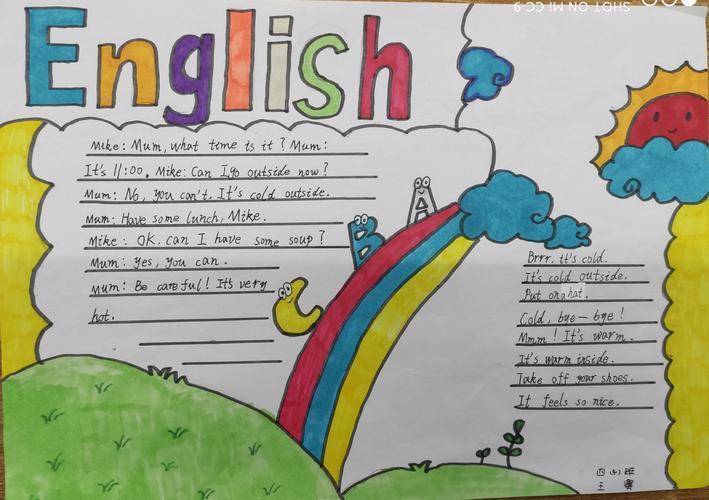 SHOT ON MI CC 9
English
Mike: Mum, what time is it? Mum:
It's 11:00. Mike: Can I go outside now?
Mum: No, you can't. It's cold outside.
Mum: Have some lunch, Mike.
Mike: OK. can I have some soup?
Mum: Yes, you can.
Mum: Be careful! It's very
hot.
A
B
C
Brrr, it's cold.
It's cold outside.
Put on a hat.
Cold, bye-bye!
Mmm! It's warm.
It's warm inside.
Take off your shoes.
It feels so nice.
四(4)班
王